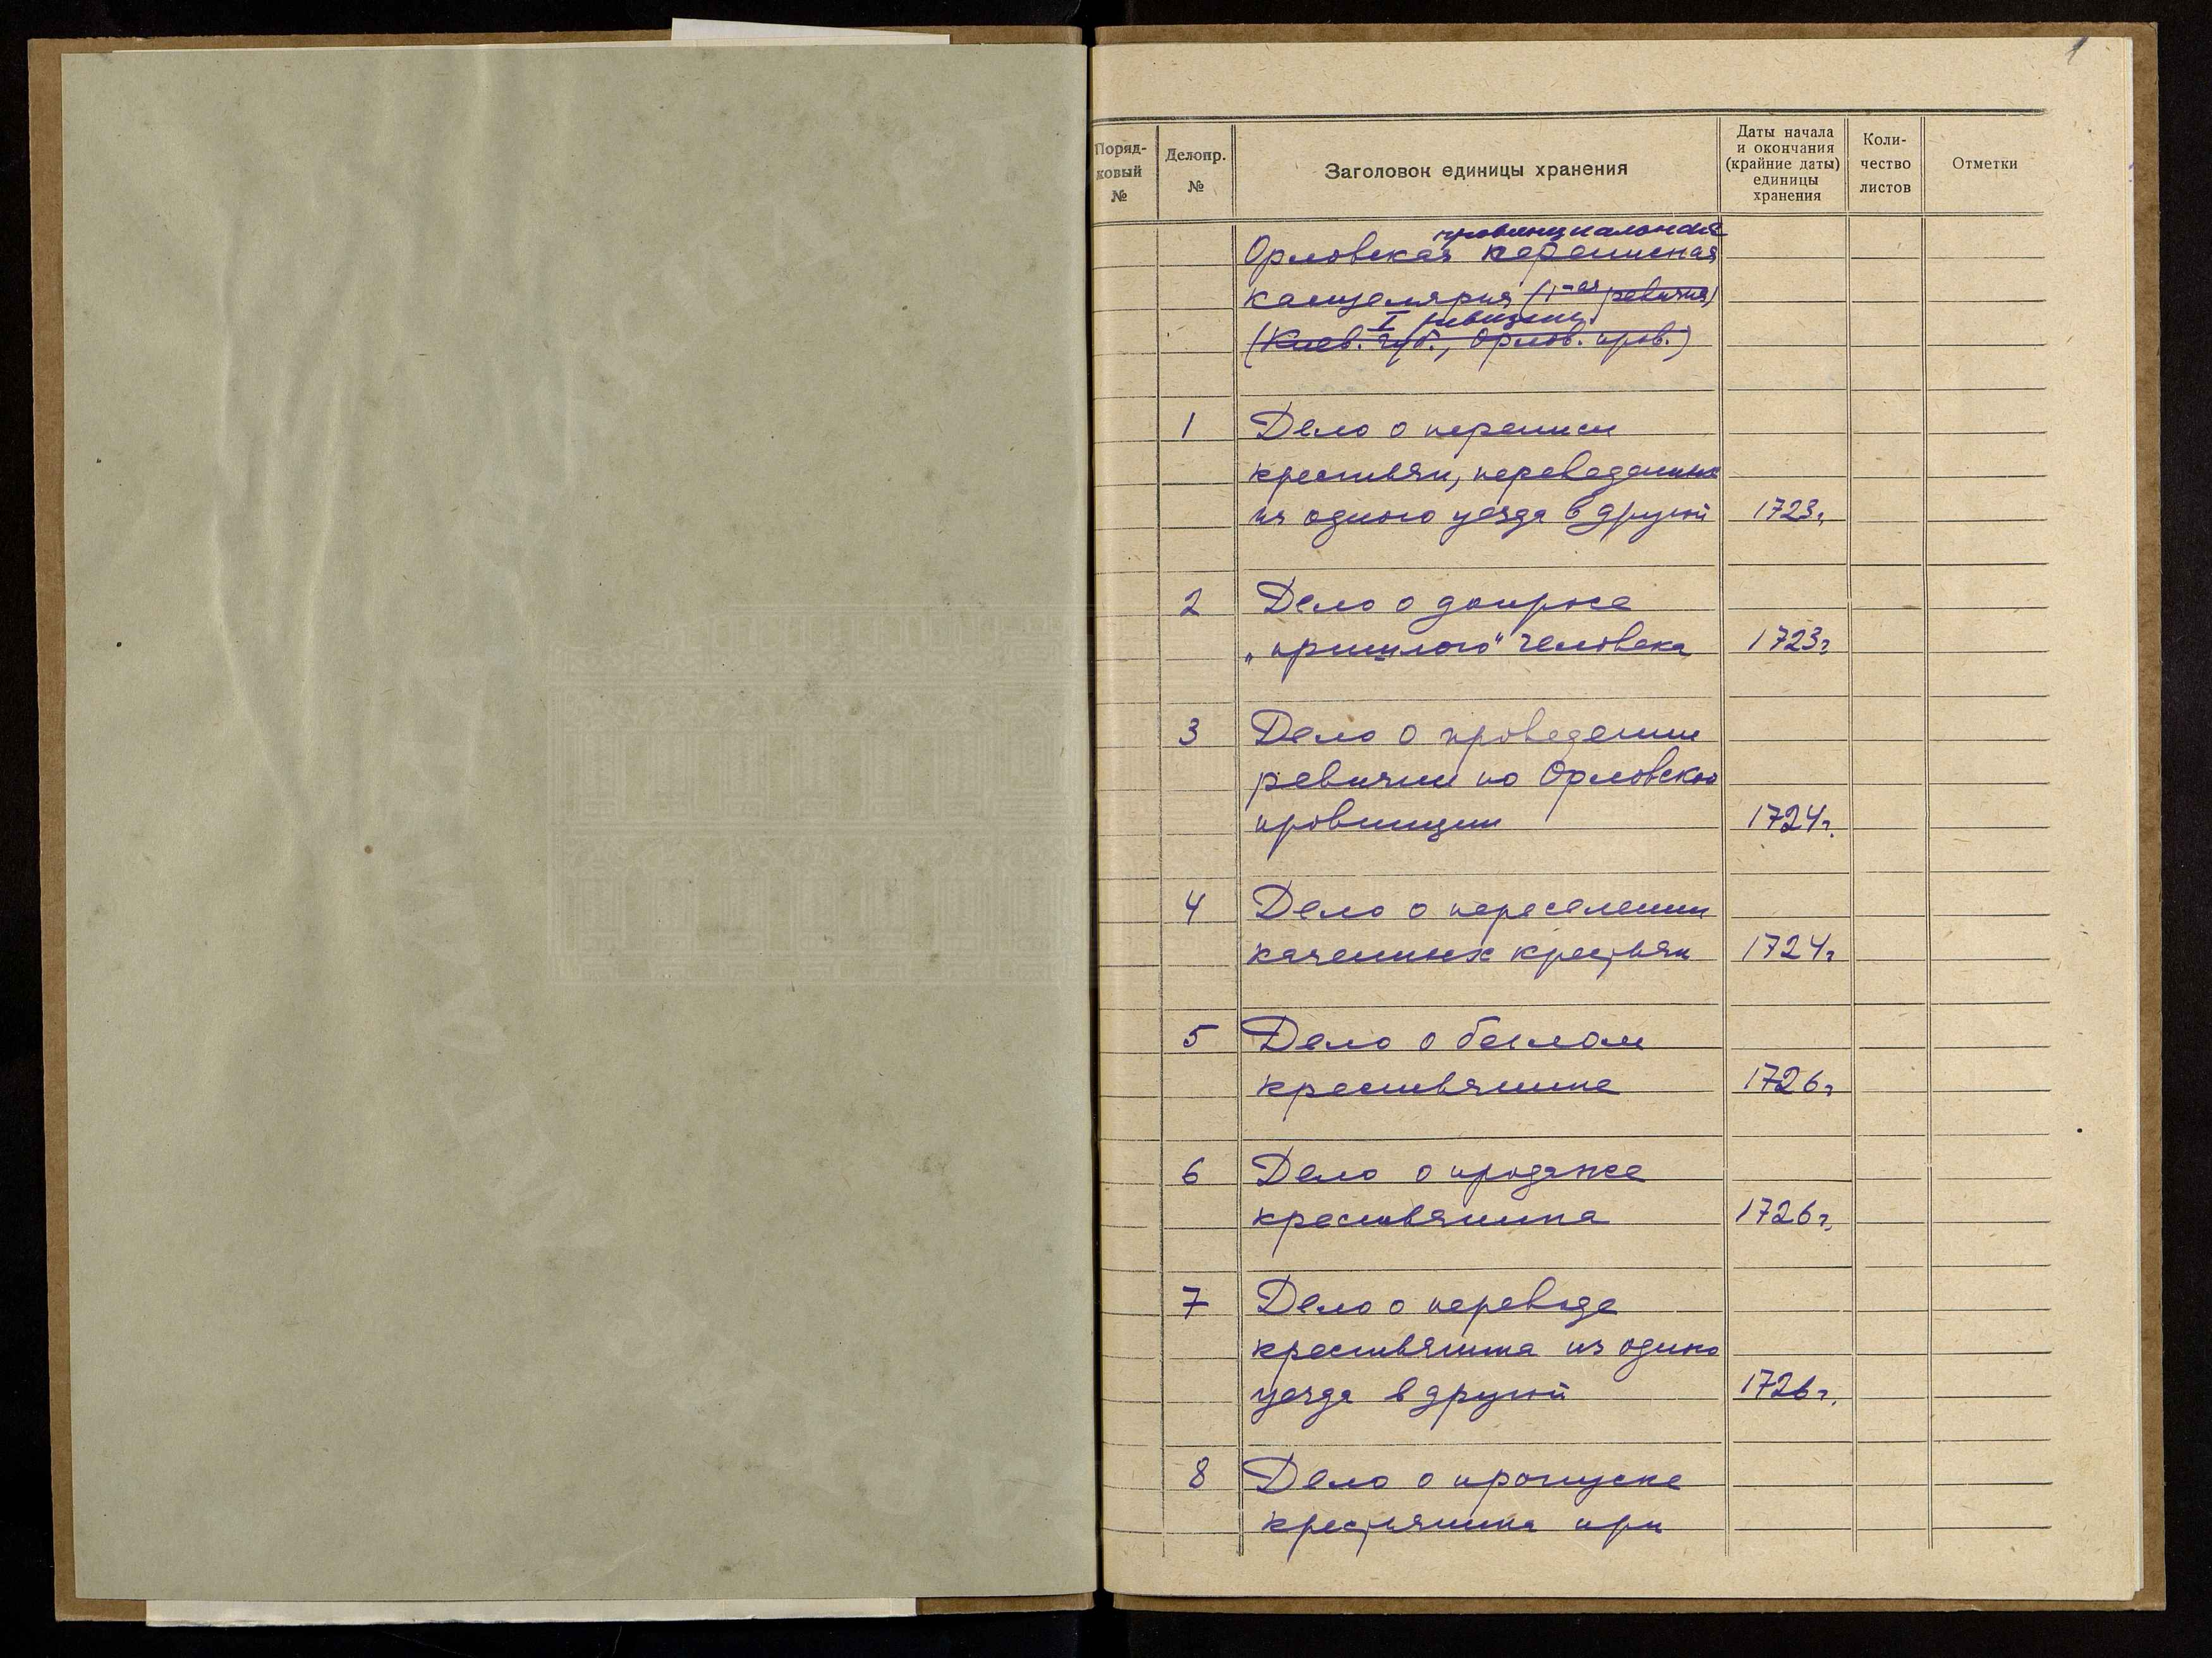 1
Поряд-
ковый
№
Делопр.
№
Заголовок единицы хранения
Даты начала
и окончания
(крайние даты)
единицы
хранения
Коли-
чество
листов
Отметки
провинциальная
Орловская переписная
канцелярия (1-ая ревизия)
I ревизии
(Киев. губ., Орлов. пров.)
1 Дело о переписи
крестьян, переведенных
из одного уезда в другой 1723г.
2 Дело о допросе
„пришлого" человека 1723г
3 Дело о проведении
ревизии по Орловской
провинции 1724г.
4 Дело о переселении
казенных крестьян 1724г
5 Дело о беглом
крестьянине 1726г
6 Дело о продаже
крестьянина 1726г.
7 Дело о переводе
крестьянина из одного
уезда в другой 1726г.
8 Дело о пропуске
крестьянина при